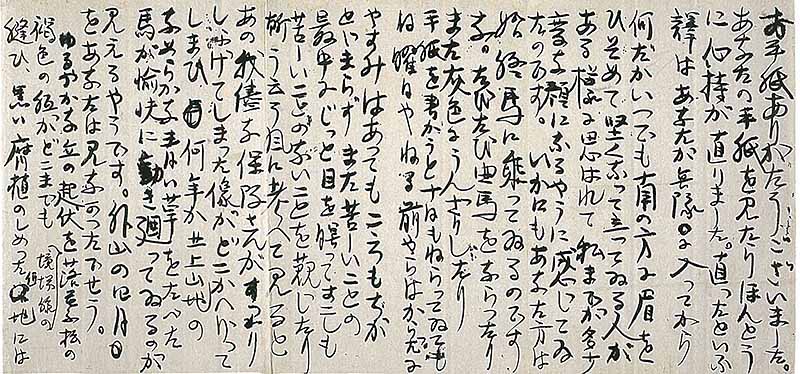 お手紙ありがたうございました。
あなたの手紙を見たりほんとう
に心持が直りました。直ったといふ
譯はあなたが兵隊に入ってから
何だかいつでも南の方で眉を
ひそめて堅くなって立ってゐる人が
ある様に思はれて私まで多少
変な顔になるやうに感じてゐ
たのです。いかにもあなた方は
始終馬に乗ってゐるのです
な。たびたび曲馬をならったり
また灰色にうんざりしたり
手紙を書かうと十日もねらってゐても
日曜日やねる前やらはからだは
やすみはあってもこころもちが
とまらずまた苦しいことの
最中にじっと目を瞑ってすこしも
苦しいことのないことを観じたり
斯うゐう風に考へて見ると
あの我儘な保阪さんがすっかり
しょげてしまった像がどこかへ行って
しまひ 何年か岩山地の
なめらかな青い草をたべた
馬が愉快に動き廻ってゐるのが
見えるやうです。外山の四月の
をあなたは見なかったでせう。
ゆるやかな丘の起伏を落葉松の
褐色の紐がどこまでも(境堺線の)
縫ひ、黒い腐植のしめった地には